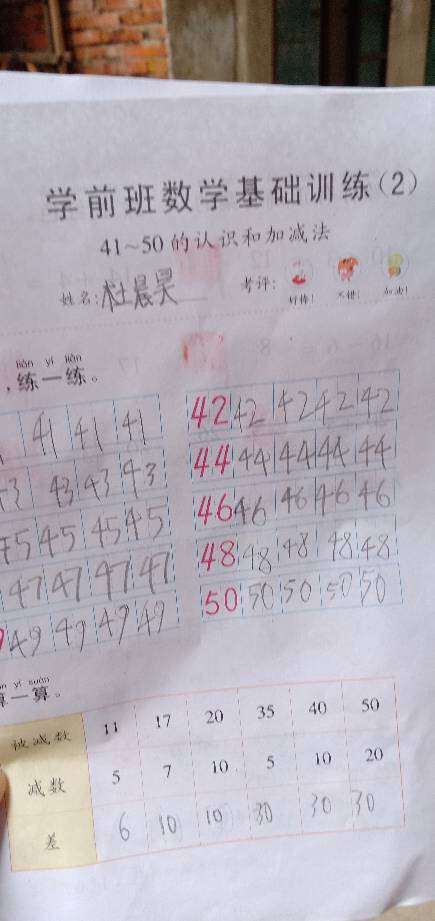 学前班数学基础训练（2）
41~50的认识和加减法
姓名：杜晨昊 考评： 好棒！ 不错！ 加油！
liàn yì liàn
练一练。
41 41 41 42 42 42 42 42
43 43 43 43 44 44 44 44 44
45 45 45 45 46 46 46 46 46
47 47 47 47 48 48 48 48 48
49 49 49 49 50 50 50 50 50
yí suàn
算一算。
被减数 11 17 20 35 40 50
减数 5 7 10 5 10 20
差 6 10 10 30 30 30